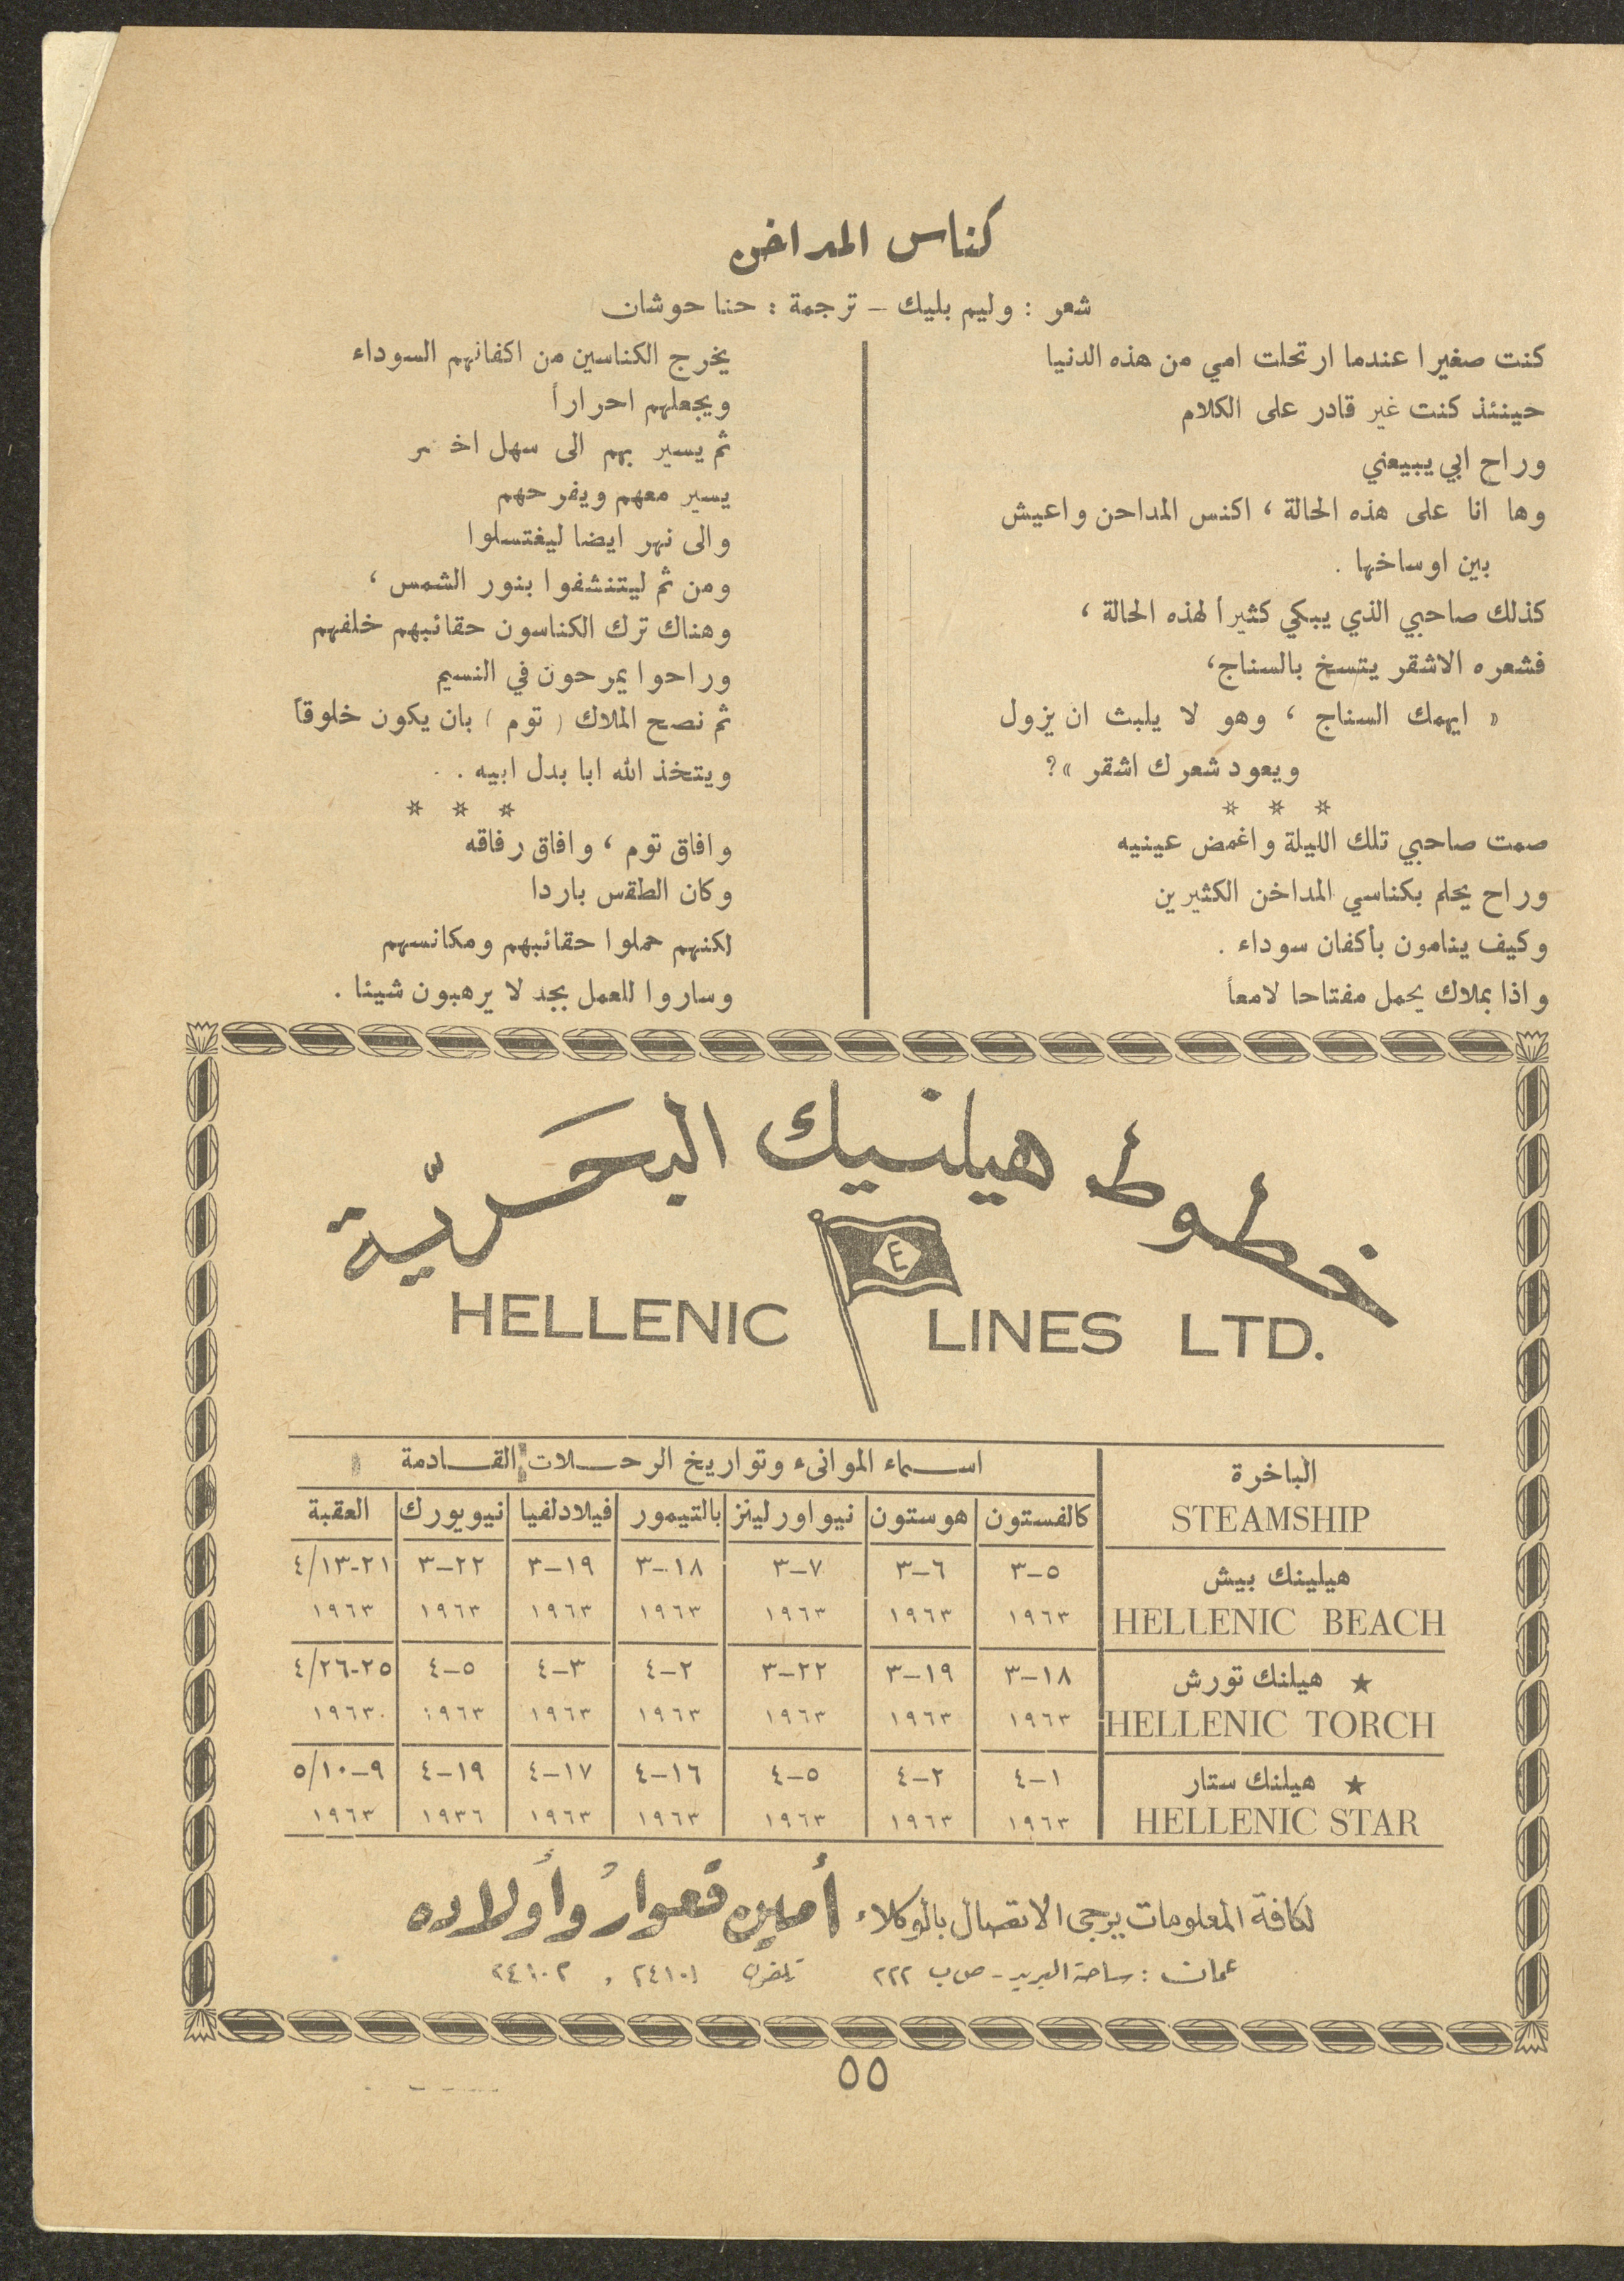 كناس المداخن
شعر : وليم بليك – ترجمة : حنا حوشان
كنت صغيرا عندما ارتحلت امي من هذه الدنيا
حينئذ كنت غير قادر على الكلام
وراح ابي يبيعني
وها انا على هذه الحالة ، اكنس المداحن واعيش
بين اوساخها .
كذلك صاحبي الذي يبكي كثيرأ لهذه الحالة ،
فشعره الاشقر يتسخ بالسناج،
« ايهمك السناج ، وهو لا يلبث ان يزول
ويعود شعرك اشقر »؟
* * *
صمت صاحبي تلك الليلة واغمض عينيه
وراح يحلم بكناسي المداخن الكثيرين
وكيف ينامون بأكفان سوداء .
واذا بملاك يحمل مفتاحا لامعاً
يخرج الكناسين من اكفانهم السوداء
ويجعلهم احراراً
ثم يسير بهم الى سهل
يسير معهم ويفرحهم
والى نهر ايضا ليغتسلوا
ومن ثم ليتنشفوا بنور الشمس ،
وهناك ترك الكناسون حقائبهم خلفهم
وراحوا يمرحون في النسيم
ثم نصح الملاك ( توم ) بان يكون خلوقاً
ويتخذ الله ابا بدل ابيه . .
* * *
وافاق توم ، وافاق رفاقه
وكان الطقس باردا
لكنهم حملوا حقائبهم ومكانسهم
وساروا للعمل بجد لا يرهبون شيئا .
خطوط هيلنيك البحرية
E
HELLENIC LINES LTD.
الباخرة اسماء الموانىء وتواريخ الرحلات القادمة
STEAMSHIP كالفستون هوستون نيواورلينز بالتيمور فيلادلفيا نيويورك العقبة
هيلينك بيش ٥-٣ ٦-٣ ٧-٣ ١٨-٣ ١٩-٣ ٢٢-٣ ٢١-١٣/٤
HELLENIC BEACH ١٩٦٣ ١٩٦٣ ١٩٦٣ ١٩٦٣ ١٩٦٣ ١٩٦٣ ١٩٦٣
★ هيلنك تورش ١٨-٣ ١٩-٣ ٢٢-٣ ٢-٤ ٣-٤ ٥-٤ ٢٥-٢٦/٤
HELLENIC TORCH ١٩٦٣ ١٩٦٣ ١٩٦٣ ١٩٦٣ ١٩٦٣ ١٩٦٣ ١٩٦٣
★ هيلنك ستار ١-٤ ٢-٤ ٥-٤ ١٦-٤ ١٧-٤ ١٩-٤ ٩-١٠/٥
HELLENIC STAR ١٩٦٣ ١٩٦٣ ١٩٦٣ ١٩٦٣ ١٩٦٣ ١٩٣٦ ١٩٦٣
لكافة المعلومات يرجى الاتصال بالوكلاء أمين قعوار وأولاده
عمان : ساحة البريد - ص ب ٢٢٢ تلفون ٢٤١٠١ و ٢٤١٠٢
٥٥